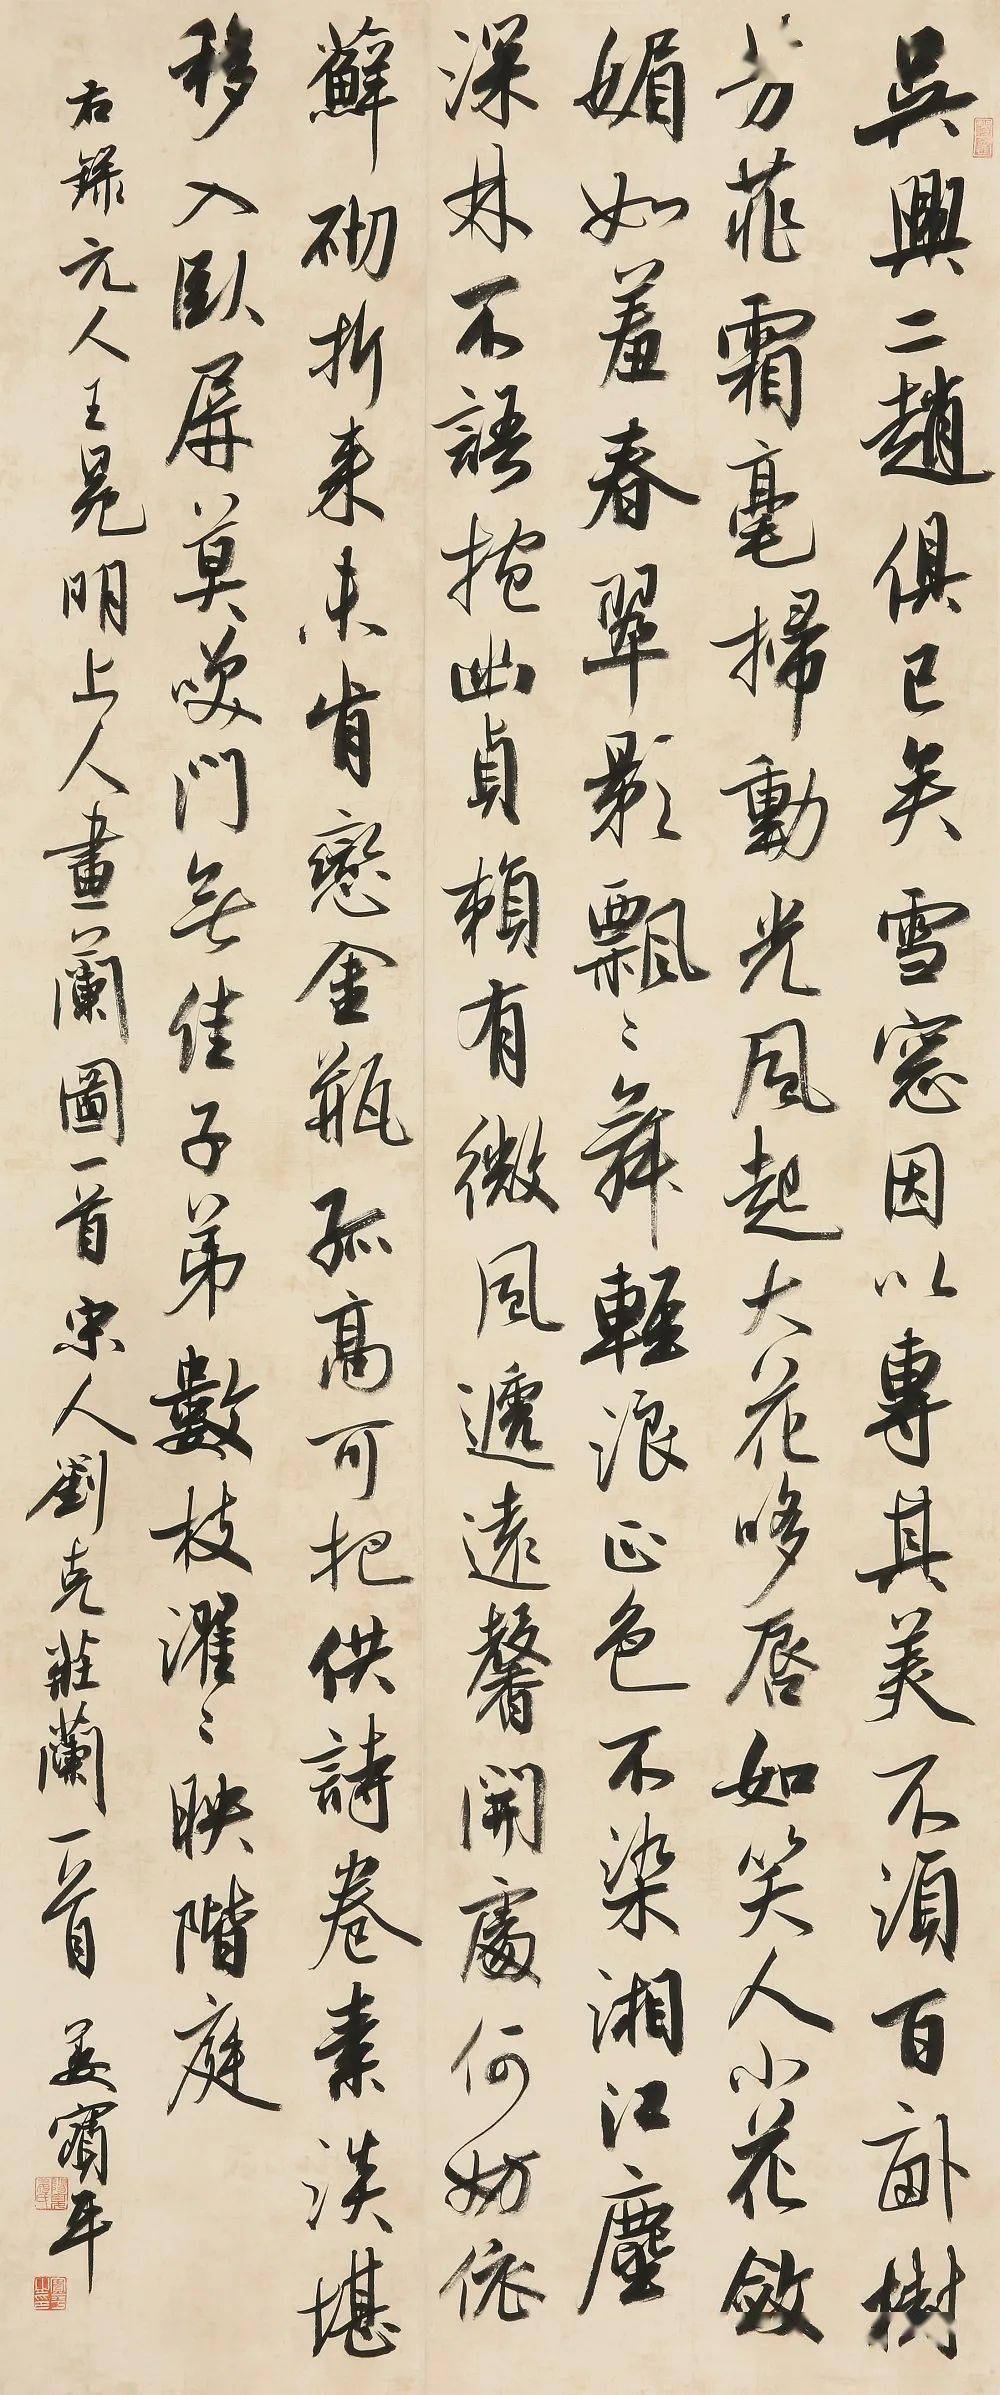 吳興二趙俱已矣雪窓因以專其美不須百畝樹
芳菲霜毫掃動光風起大花哆唇如笑人小花斂
媚如羞春翠影飄〻舞輕浪正色不染湘江塵
深林不語抱幽貞賴有微風遞遠馨開處何妨依
蘚砌折來未肯戀金瓶孤高可挹供詩卷素淡堪
移入臥屏莫笑門無佳子弟數枝濯〻映階庭
右錄元人王冕明上人畫蘭圖一首宋人劉克莊蘭一首 姜寶平